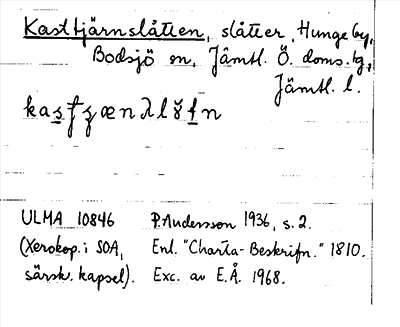 Kasttjärnslåtten, slåtter, Hunge by,
Bodsjö sn, Jämtl. Ö. doms. tg,
Jämtl. l.
ULMA 10846 P. Andersson 1936, s. 2.
(Xerokop. i SOA, Enl. "Charta-Beskrifn." 1810.
särsk. kapsel). Exc. av E.Å. 1968.